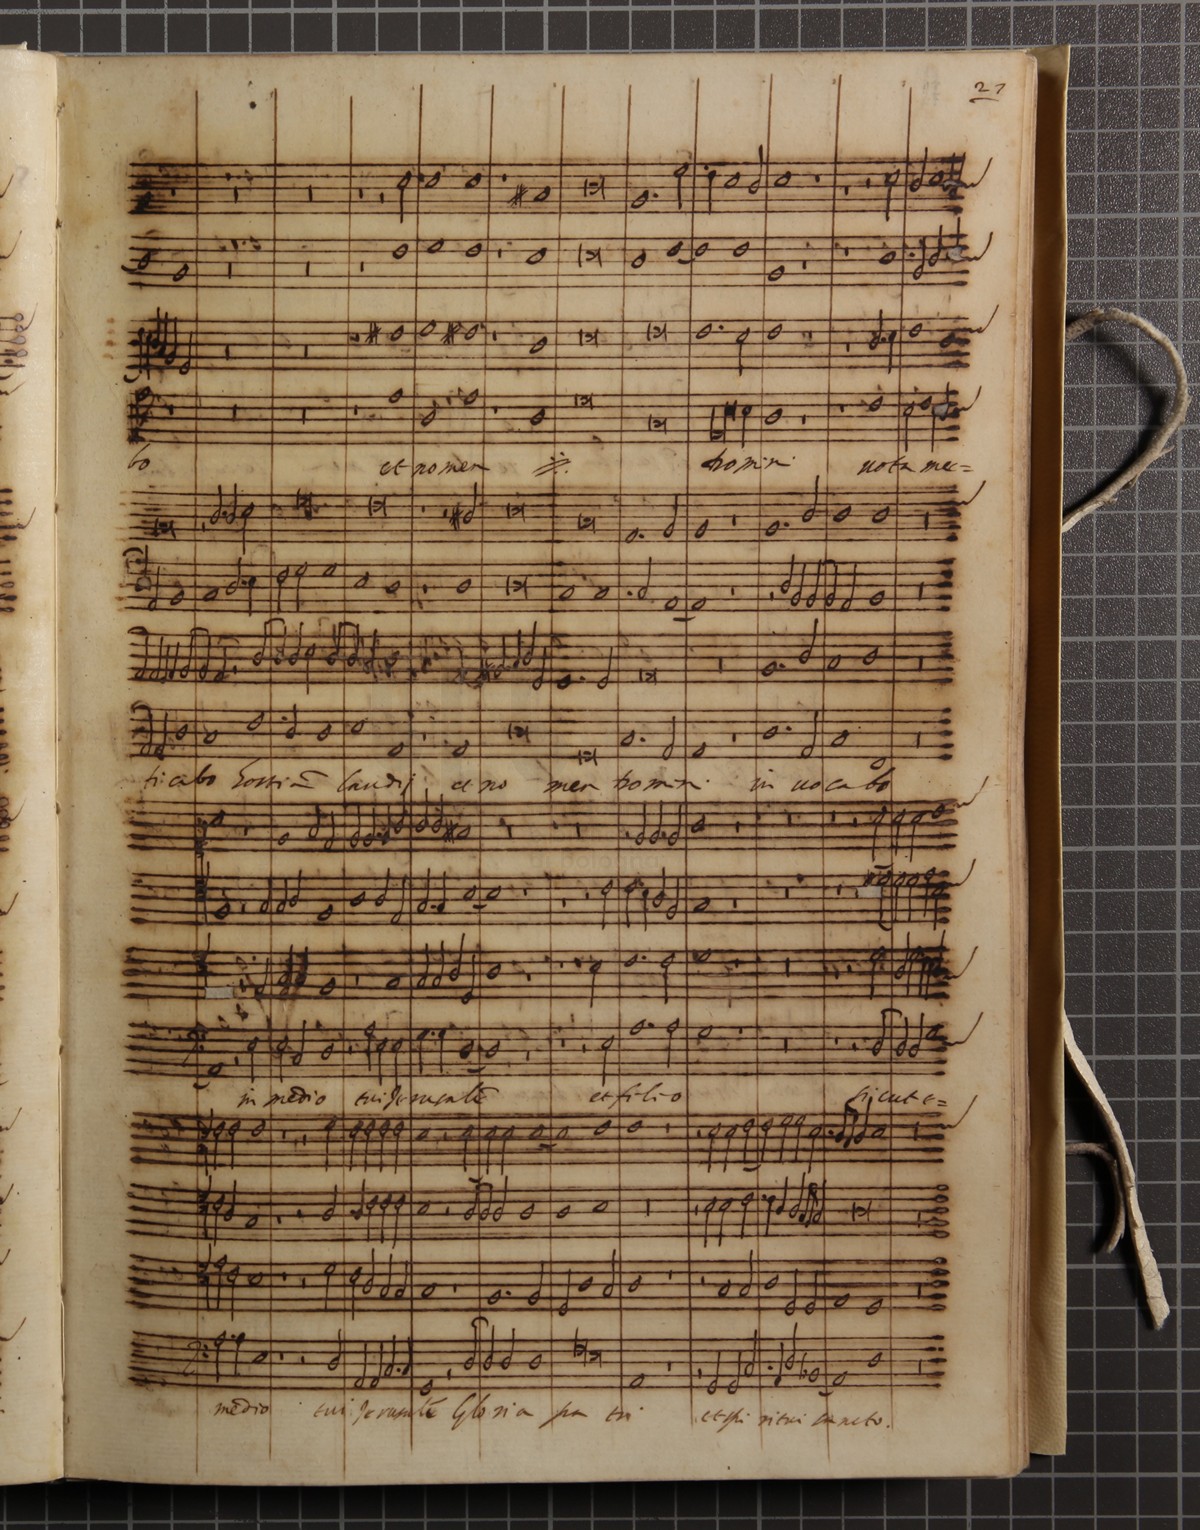 27
bo et nomen ij. Domini uota me=
ficabo hostiā laudis et no men Domini in uoca bo
in medio tui Jerusalē et filio sicut e=
medio tui Jerusalē Gloria pa tri et spi ritui sancto.